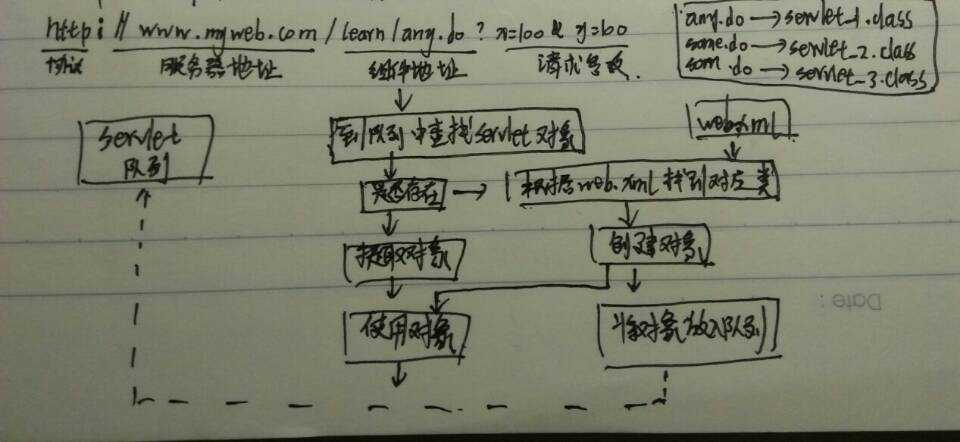 http:// www.myweb.com / learn/any.do ? x=100 & y=100
协议 服务器地址 组件地址 请求参数.
any.do → servlet_1.class
some.do → servlet_2.class
som .do → servlet_3.class
servlet
队列
到队列中查找servlet对象
web.xml
是否存在
根据web.xml找到对应类
提取对象
创建对象
使用对象
将对象放入队列
Date: